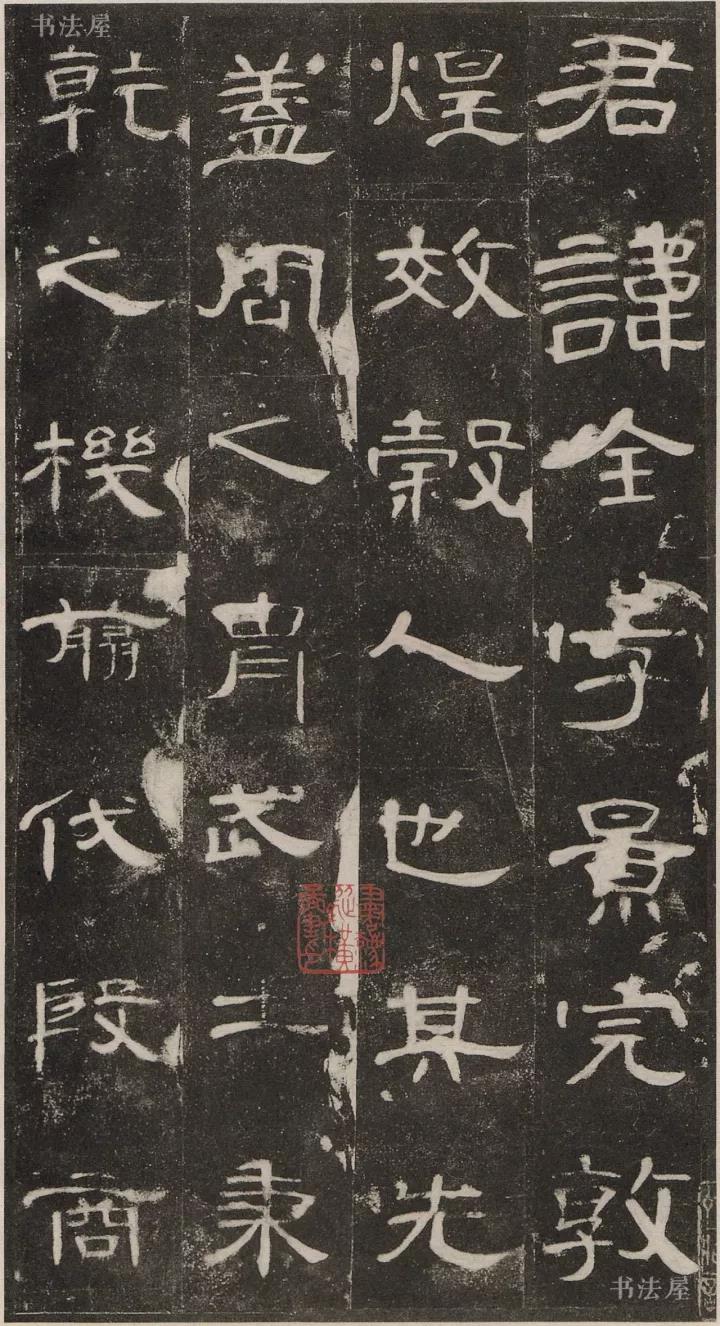 君諱全字景完敦
煌效穀人也其先
蓋周之胄武王秉
乾之機翦伐殷商
书法屋
书法屋